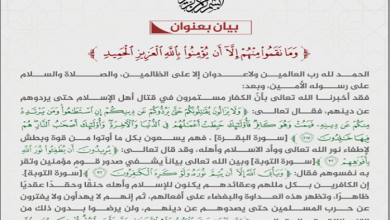 بيان بعنوان
﴿ وَمَا نَقَمُوا مِنْهُمْ إِلَّا أَن يُؤْمِنُوا بِاللَّهِ الْعَزِيزِ الْحَمِيدِ ﴾
الحمد لله رب العالمين ولاعدوان إلا على الظالمين، والصلاة والسلام
على رسوله الأمين، وبعد:
فقد أخبرنا الله تعالى بأن الكفار مستمرون في قتال أهل الإسلام حتى يردوهم
عن دينهم، فقال تعالى: ﴿ وَلَا يَزَالُونَ يُقَاتِلُونَكُمْ حَتَّىٰ يَرُدُّوكُمْ عَن دِينِكُمْ إِنِ اسْتَطَاعُوا وَمَن يَرْتَدِدْ
مِنكُمْ عَن دِينِهِ فَيَمُتْ وَهُوَ كَافِرٌ فَأُولَٰئِكَ حَبِطَتْ أَعْمَالُهُمْ فِي الدُّنْيَا وَالْآخِرَةِ وَأُولَٰئِكَ أَصْحَابُ النَّارِ هُمْ
فِيهَا خَالِدُونَ ﴾ [سورة البقرة]، فهم يسعون بكل ما أوتوا من قوة وبطش
لإطفاء نور الله تعالى ووأد الإسلام وأهله، وقد قال تعالى: ﴿ يُرِيدُونَ أَن يُطْفِئُوا نُورَ اللَّهِ
بِأَفْوَاهِهِمْ ﴾ [سورة التوبة] وبين الله تعالى بياناً يشفي صدور قوم مؤمنين وتقر
به نفوسهم فقال: ﴿ وَيَأْبَى اللَّهُ إِلَّا أَن يُتِمَّ نُورَهُ وَلَوْ كَرِهَ الْكَافِرُونَ ﴾ [سورة التوبة].
إن الكافرين بكل مللهم وعقائدهم يكنون للإسلام وأهله حنقا وحقدا عقديا
ظاهرا، وتظهر هذه العداوة والبغضاء على أفعالهم، ثم إنهم لا يهدأون ولا يفترون
عن حرب المسلمين حتى يصدوهم عن دينهم، ولن يرضوا بدون ذلك من